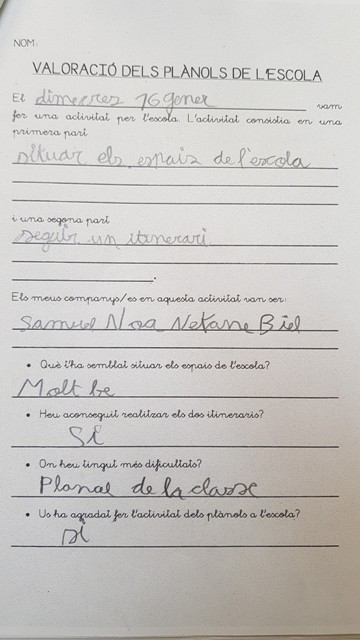 NOM:
VALORACIÓ DELS PLÀNOLS DE L'ESCOLA
El dimecres 16 gener vam
fer una activitat per l'escola. L'activitat consistia en una
primera part
situar els espais de l'escola
i una segona part
seguir un itinerari
.
Els meus companys/es en aquesta activitat van ser:
Samuel Noa Nekane Biel
• Què t'ha semblat situar els espais de l'escola?
Molt be
• Heu aconseguit realitzar els dos itineraris?
Si
• On heu tingut més dificultats?
Planol de la classe
• Us ha agradat fer l'activitat dels plànols a l'escola?
si